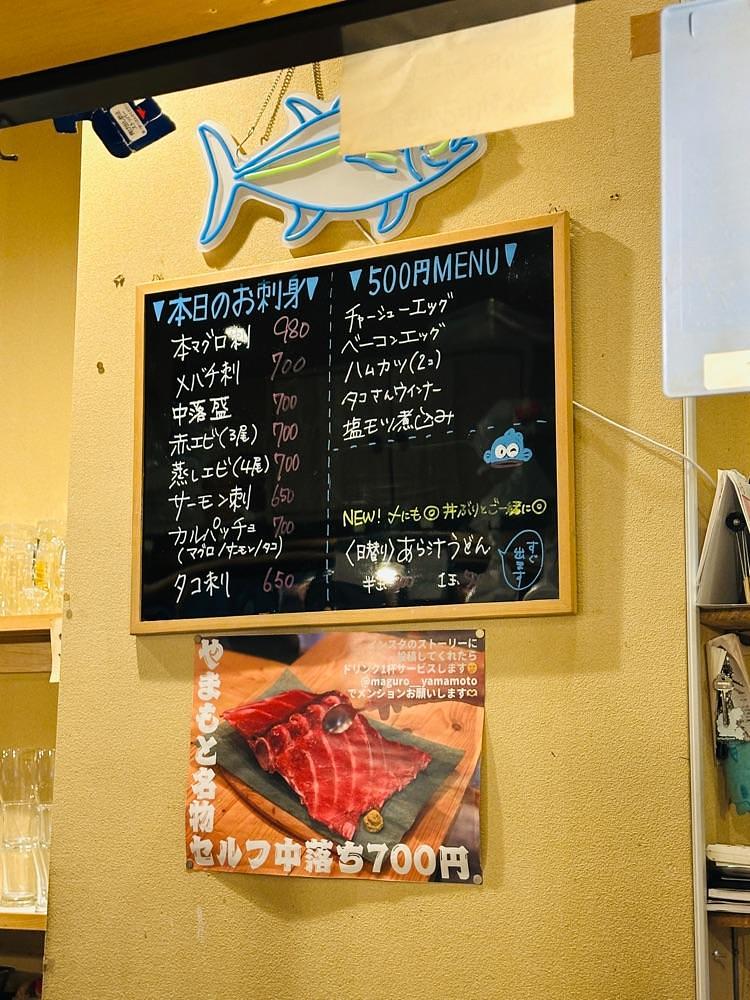 ▼本日のお刺身▼
本マグロ刺 980
メバチ刺 700
中落盛 700
赤エビ(3尾) 700
蒸しエビ(4尾) 700
サーモン刺 650
カルパッチョ 700
(マグロ/サーモン/タコ)
タコ刺 650
▼500円MENU▼
チャーシューエッグ
ベーコンエッグ
ハムカツ(2コ)
タコさんウインナー
塩モツ煮込み
NEW! 〆にも◎ 丼ぶりとご一緒に◎
〈日替り〉あら汁うどん
半玉 1玉
すぐ
出ます
インスタのストーリーに
投稿してくれたら
ドリンク1杯サービスします
@maguro__yamamoto
でメンションお願いします
やまもと名物
セルフ中落ち700円